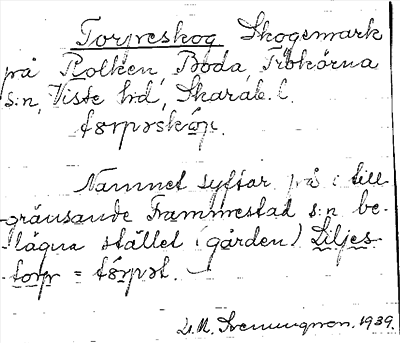 Torpeskog Skogsmark
på Rolken, Boda, Tråkärna
s:n, Viste hd, Skarab. l.
Namnet syftar på i till-
gränsande Frammestad s:n be-
lägna stället (gården) Liljes-
torp =
D.M. Svenningson. 1939.